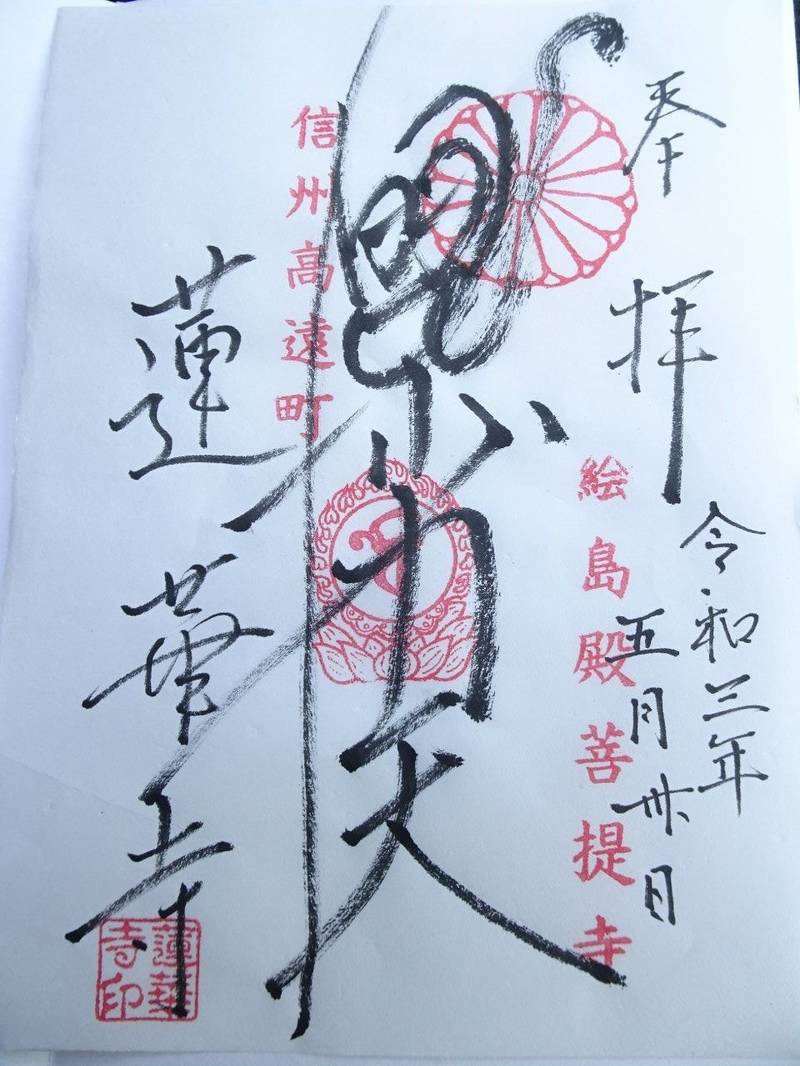 奉拝
令和三年
五月卅日
絵島殿菩提寺
毘沙門天
信州高遠町
蓮華寺
蓮華寺印